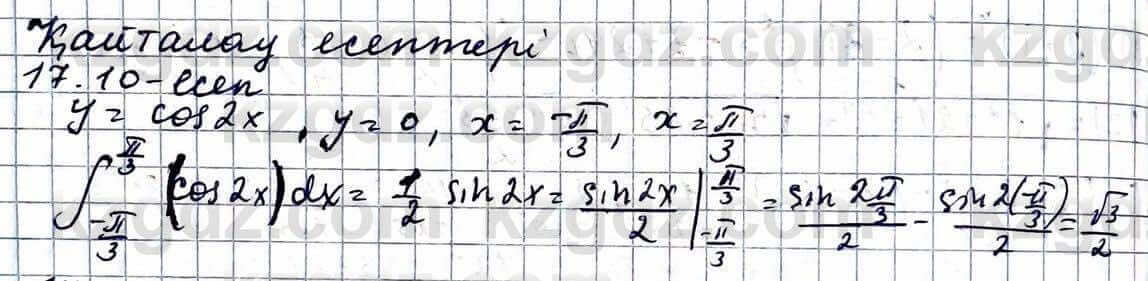 Қайталау есептері
17.10-есеп
y = cos2x, y = 0, x = -π/3, x = π/3
∫_{-π/3}^{π/3} (cos2x)dx = 1/2 sin2x = sin2x/2 |_{-π/3}^{π/3} = sin 2π/3 / 2 - sin2(-π/3)/2 = √3/2
kzgdz.com